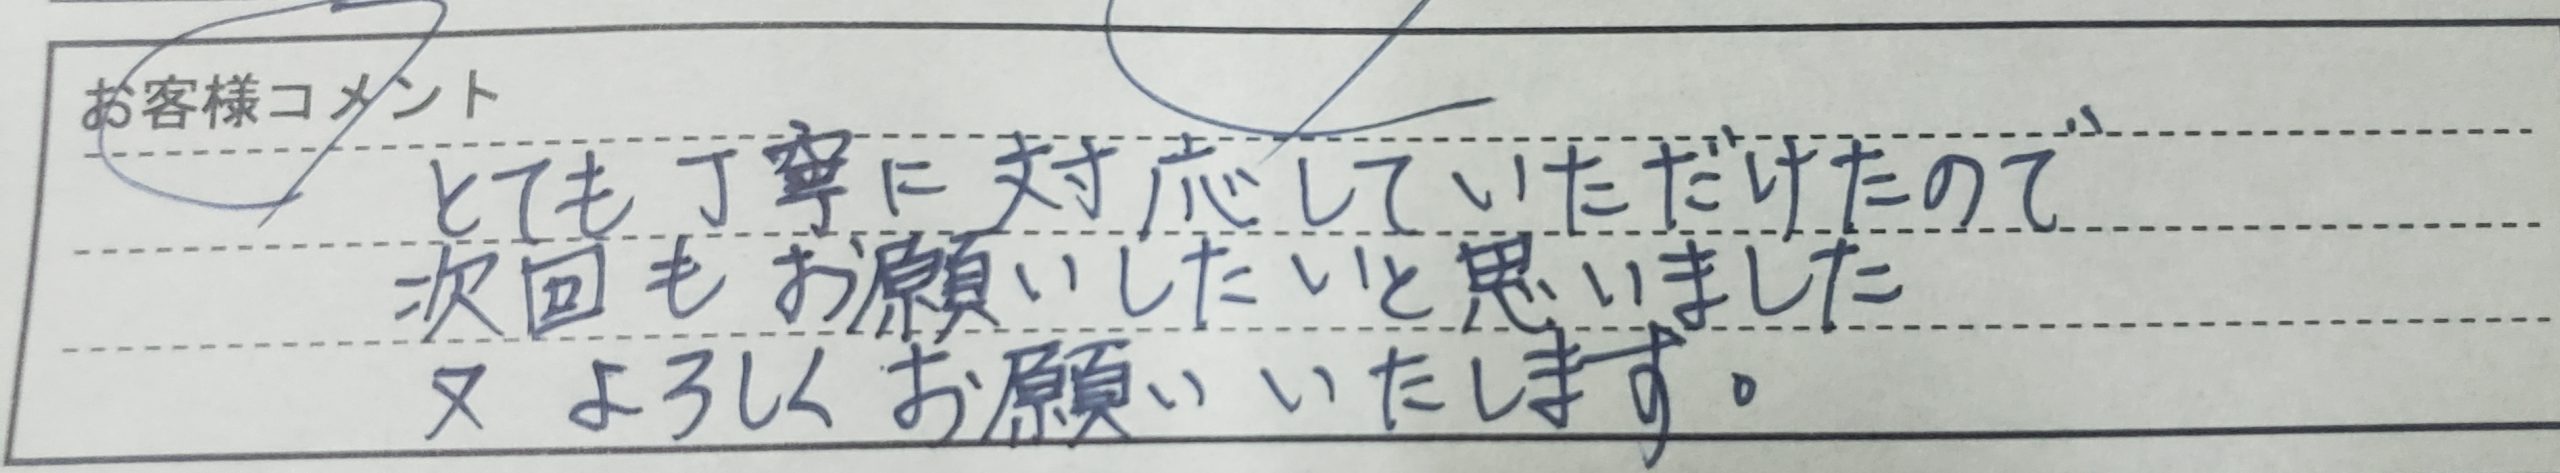 お客様コメント
とても丁寧に対応していただけたので
次回もお願いしたいと思いました
又よろしくお願いいたします。